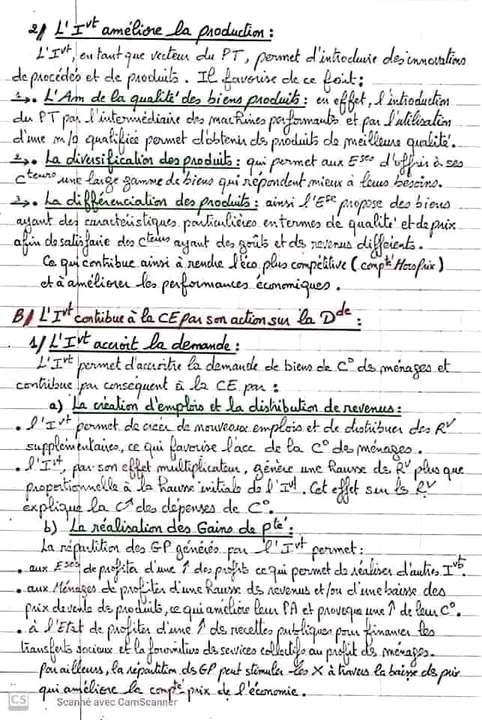 2/ L'Ivt améliore la production :
L'Ivt, en tant que vecteur du PT, permet d'introduire des innovations
de procédés et de produits. Il favorise de ce fait :
→. L'Am de la qualité des biens produits : en effet, l'introduction
du PT par l'intermédiaire des machines performantes et par l'utilisation
d'une m/o qualifiée permet d'obtenir des produits de meilleure qualité.
→. La diversification des produits : qui permet aux Eses d'offrir à ses
Cteurs une large gamme de biens qui répondent mieux à leurs besoins.
→. La différenciation des produits : ainsi l'Ese propose des biens
ayant des caractéristiques particulières en termes de qualité et de prix
afin de satisfaire des Cteurs ayant des goûts et ds revenus différents.
Ce qui contribue ainsi à rendre l'éco, plus compétitive (compté Hors prix)
et à améliorer les performances économiques.
B/ L'Ivt contribue à la CE par son action sur la Dde :
1/ L'Ivt accroît la demande :
L'Ivt permet d'accroître la demande de biens de C° ds ménages et
contribue par conséquent à la CE par :
a) La création d'emplois et la distribution de revenus :
. l'Ivt permet de créer de nouveaux emplois et de distribuer des RV
supplémentaires, ce qui favorise l'acc de la C° des ménages.
. l'Ivt, par son effet multiplicateur, génère une hausse ds RV plus que
proportionnelle à la hausse initiale de l'Ivt. Cet effet sur ls RV
explique la des dépenses de C°.
b) La réalisation des Gains de Pté :
La répartition des GP générés par l'Ivt permet :
. aux Eses de profiter d'une ↑ des profits ce qui permet de réaliser d'autres Ivts.
. aux Ménages de profiter d'une hausse ds revenus et/ou d'une baisse des
prix de vente ds produits, ce qui améliore leur PA et provoque une ↑ de leur C°.
. à l'Etat de profiter d'une ↑ ds recettes publiques pour financer les
transferts sociaux et la fourniture de services collectifs au profit ds ménages.
Par ailleurs, la répartition ds GP peut stimuler les X à travers la baisse ds prix
qui améliore la compté prix de l'économie.
CS Scanné avec CamScanner